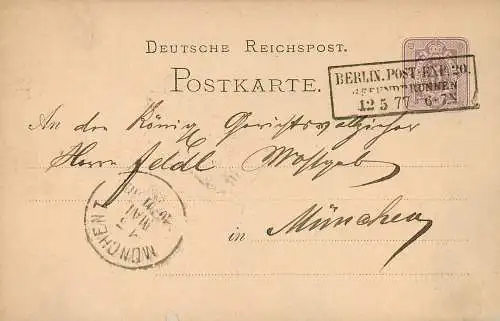 DEUTSCHE REICHSPOST.
POSTKARTE.
BERLIN. POST-EXP. 20.
GESUNDBRUNNEN
12 5 77 6-7N
An den König Gerichtsvollzieher
Herrn Feldl
in München
MÜNCHEN I
MAI